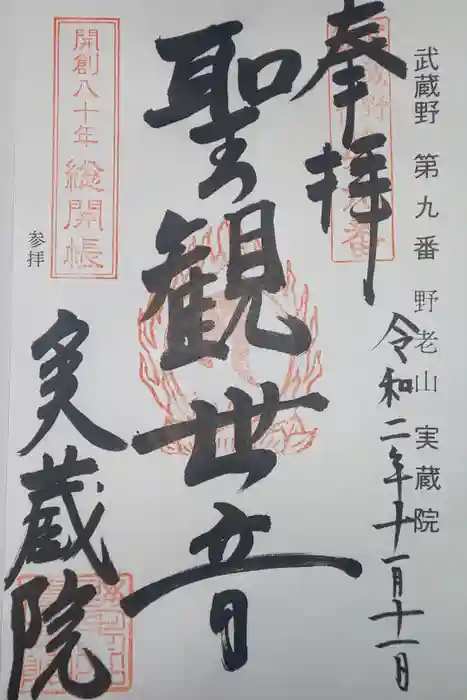 武蔵野 第九番 野老山 実蔵院
奉拝
令和二年十一月十一日
聖観世音
開創八十年 総開帳
参拝
実蔵院